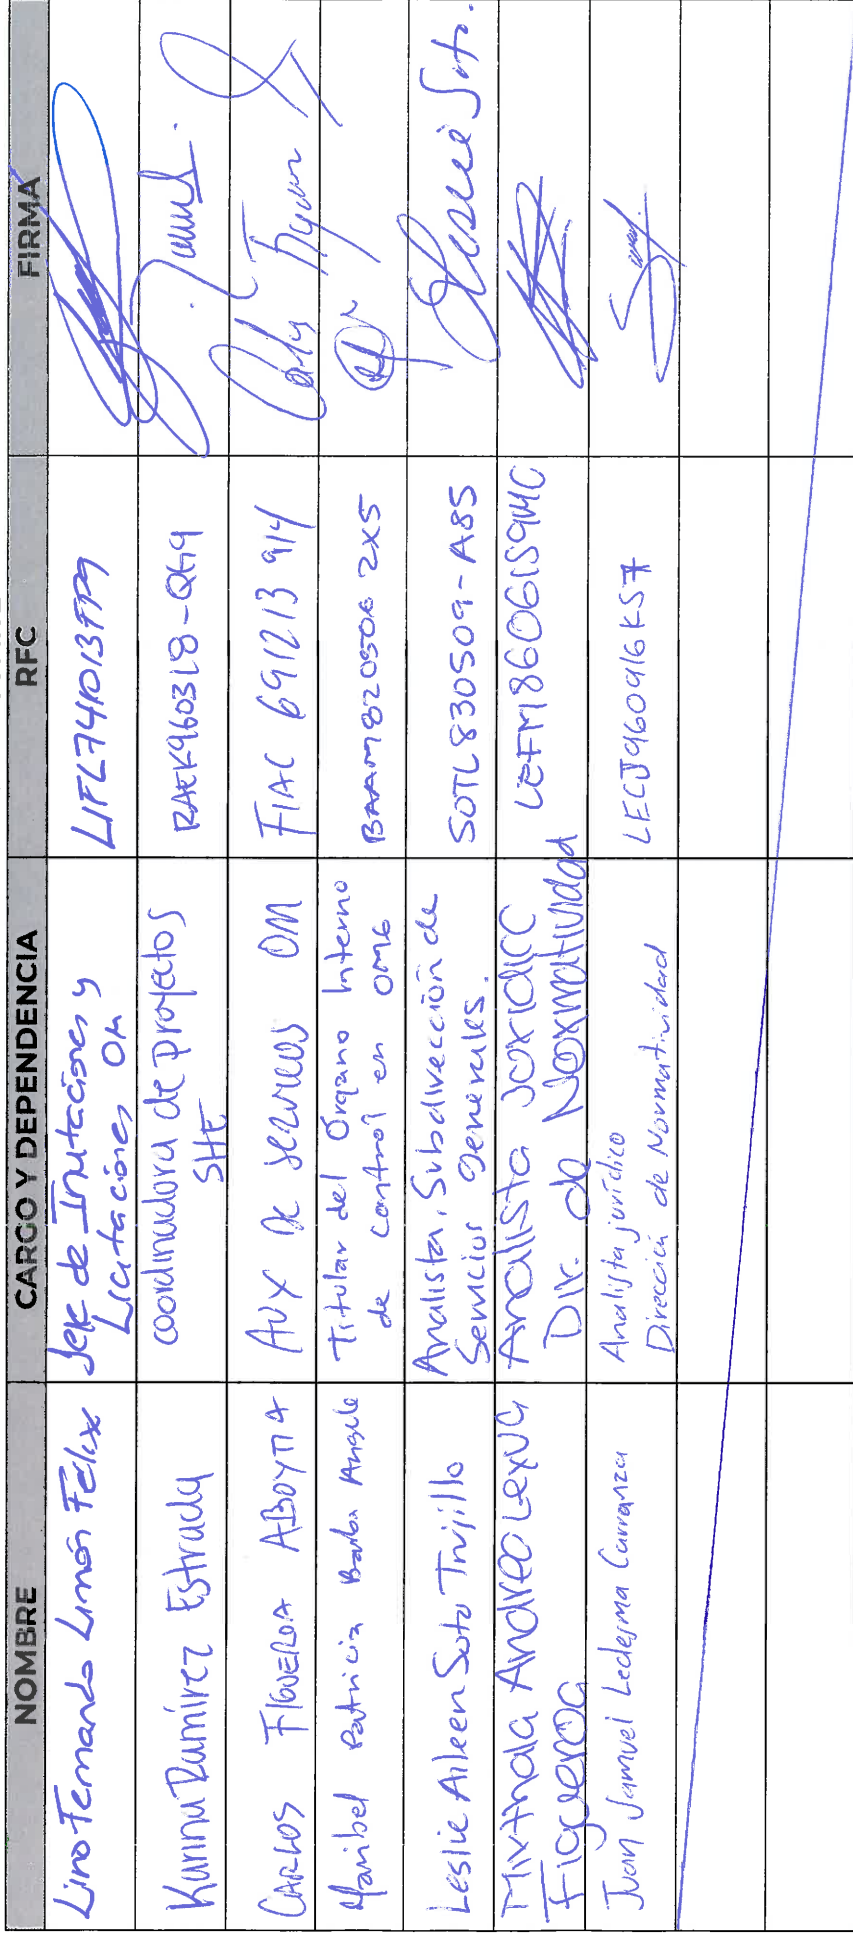 NOMBRE CARGO Y DEPENDENCIA RFC FIRMA
Lino Fernando Limón Félix Jefe de Invitaciones y
Licitaciones OM LIFL741013FP9
Karina Ramírez Estrada coordinadora de proyectos
SHF RAEK960318-QH9
CARLOS FIGUEROA ABOYTIA AUX DE SERVICIOS OM FIAC 691213 914
Maribel Patricia Barba Angulo Titular del Órgano Interno
de control en OMG BAAM820506 2X5
Leslie Aileen Soto Trujillo Analista, Subdirección de
Servicios Generales. SOTL830509-A85 Leslie Soto.
Mirthala Andrea Lerma
Figueroa Analista Jurídico
Dir. de Normatividad
Juan Samuel Ledesma Carranza Analista jurídico
Dirección de Normatividad LECJ960916KS7